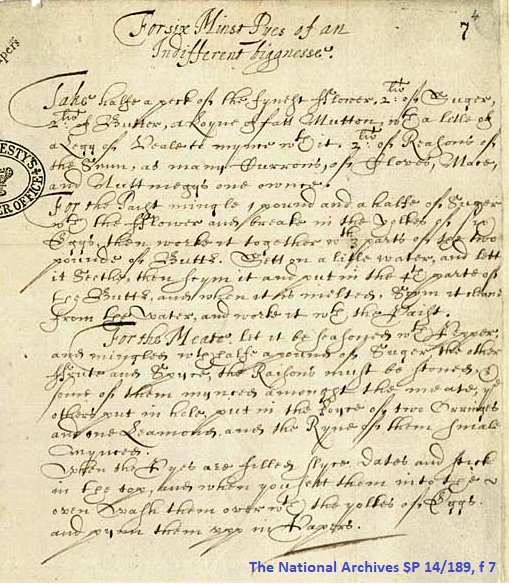 4
7
For six Minst Pyes of an
Indifferent biggnesse.
Take halfe a peck of the fynest Flower, 2li of Suger,
2li of Butter, a Loyne of fatt Mutton, wth a litle of
a Legg of Veale to mynce wth it, 2li of Reasons of
the Sunn, as many Currons, of Cloves, Mace,
and Nuttmeggs one ownce.
For the Paist mingle 1 pound and a halfe of Suger
wth the Flower and breake in the yolkes of six
Eggs, then worke it together wth 3 parts of the two
pounds of Butter. Sett on a litle water, and lett
it seethe, then scym it and put in the 4th parte of
the Butter, and when it is melted, Scym it cleane
from the water, and worke it wth the Paist.
For the Meate let it be seasoned wth Pepper,
and mingled wth halfe a pound of Suger, the other
Frute and Spyce, the Raisons must be stoned, &
some of them mynced amongst the meate, ye
others put in hole, put in the Joyce of two Orringes
and one Leamond, and the Ryne of them smale
mynced.
When the Pyes are filled slyce dates and stick
in the top, and when you sett them into the
oven Wash them over wth the yolkes of Eggs.
and pynn them upp in Papers.
The National Archives SP 14/189, f 7